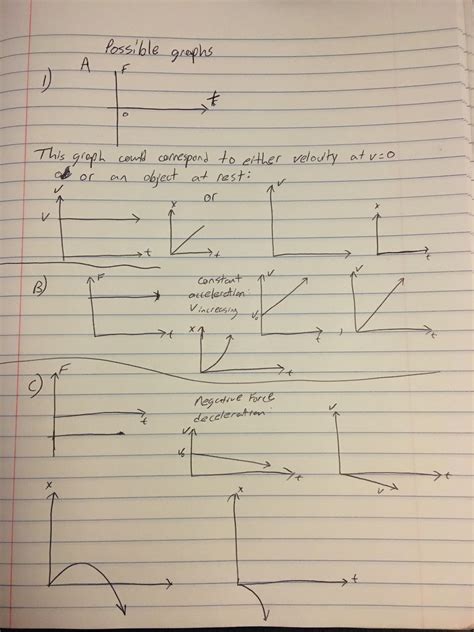 Possible graphs
1) A F
0 t
This graph could correspond to either velocity at v=0
or an object at rest:
v x or v x
V t t
B) F Constant v v
acceleration:
V increasing V₀
t x t , t
t
C) F Negative Force
t deceleration:
v v
V₀ t t
v
x x
t